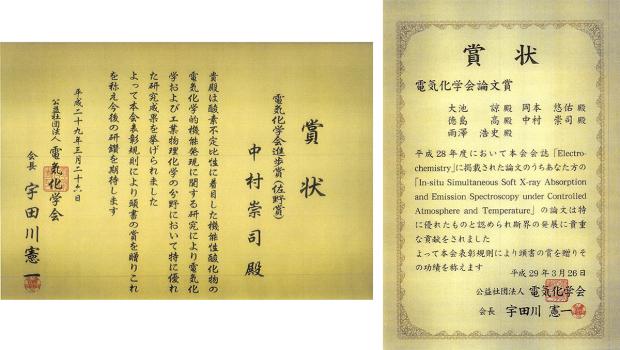 賞状
電気化学会進歩賞(佐野賞)
中村崇司殿
貴殿は酸素不定比性に着目した機能性酸化物の
電気化学的機能発現に関する研究により電気化
学および工業物理化学の分野において特に優れ
た研究成果を挙げられました
よって本会表彰規則により頭書の賞を贈りこれ
を称え今後の研鑽を期待します
平成二十九年三月二十六日
公益社団法人 電気化学会
会長 宇田川憲一
賞状
電気化学会論文賞
大池 諒殿 岡本 悠佑殿
徳島 高殿 中村 崇司殿
雨澤 浩史殿
平成28年度において本会会誌「Electro-
chemistry」に掲載された論文のうちあなた方の
「In-situ Simultaneous Soft X-ray Absorption
and Emission Spectroscopy under Controlled
Atmosphere and Temperature」の論文は特
に優れたものと認められ斯界の発展に貴重
な貢献をされました
よって本会表彰規則により頭書の賞を贈りそ
の功績を称えます
平成29年3月26日
公益社団法人 電気化学会
会長 宇田川 憲一